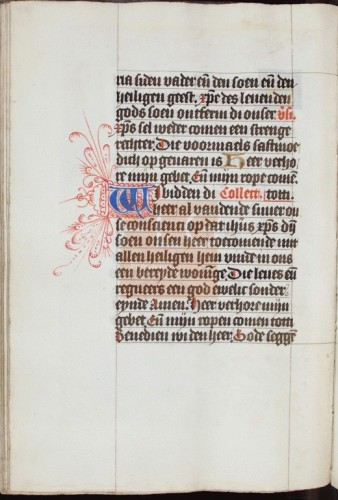 ria si den vader eñ den soen eñ den
heiligen geest. xp̄e des leuenden
gods soen ontferm di onser. v̄s.
xp̄s sel weder comen een strenge
rechter. Die voormaels sastmoe
dich op geuaren is Heer verho
re mijn gebet. Eñ mijn rope comē.
Wi bidden di Collect. totti.
heer al vandende suuer on
se conscienci op dat ih̄us xp̄s dijn
soen ons heer toecomende mit
allen heiligen hem vinde in ons
een bereyde woninge Die leues eñ
regneers een god ewelic sonder
eynde Amen. Heer verhore mijn
gebet. Eñ mijn ropen comen totti
Benedien wi den heer. Gode seggē